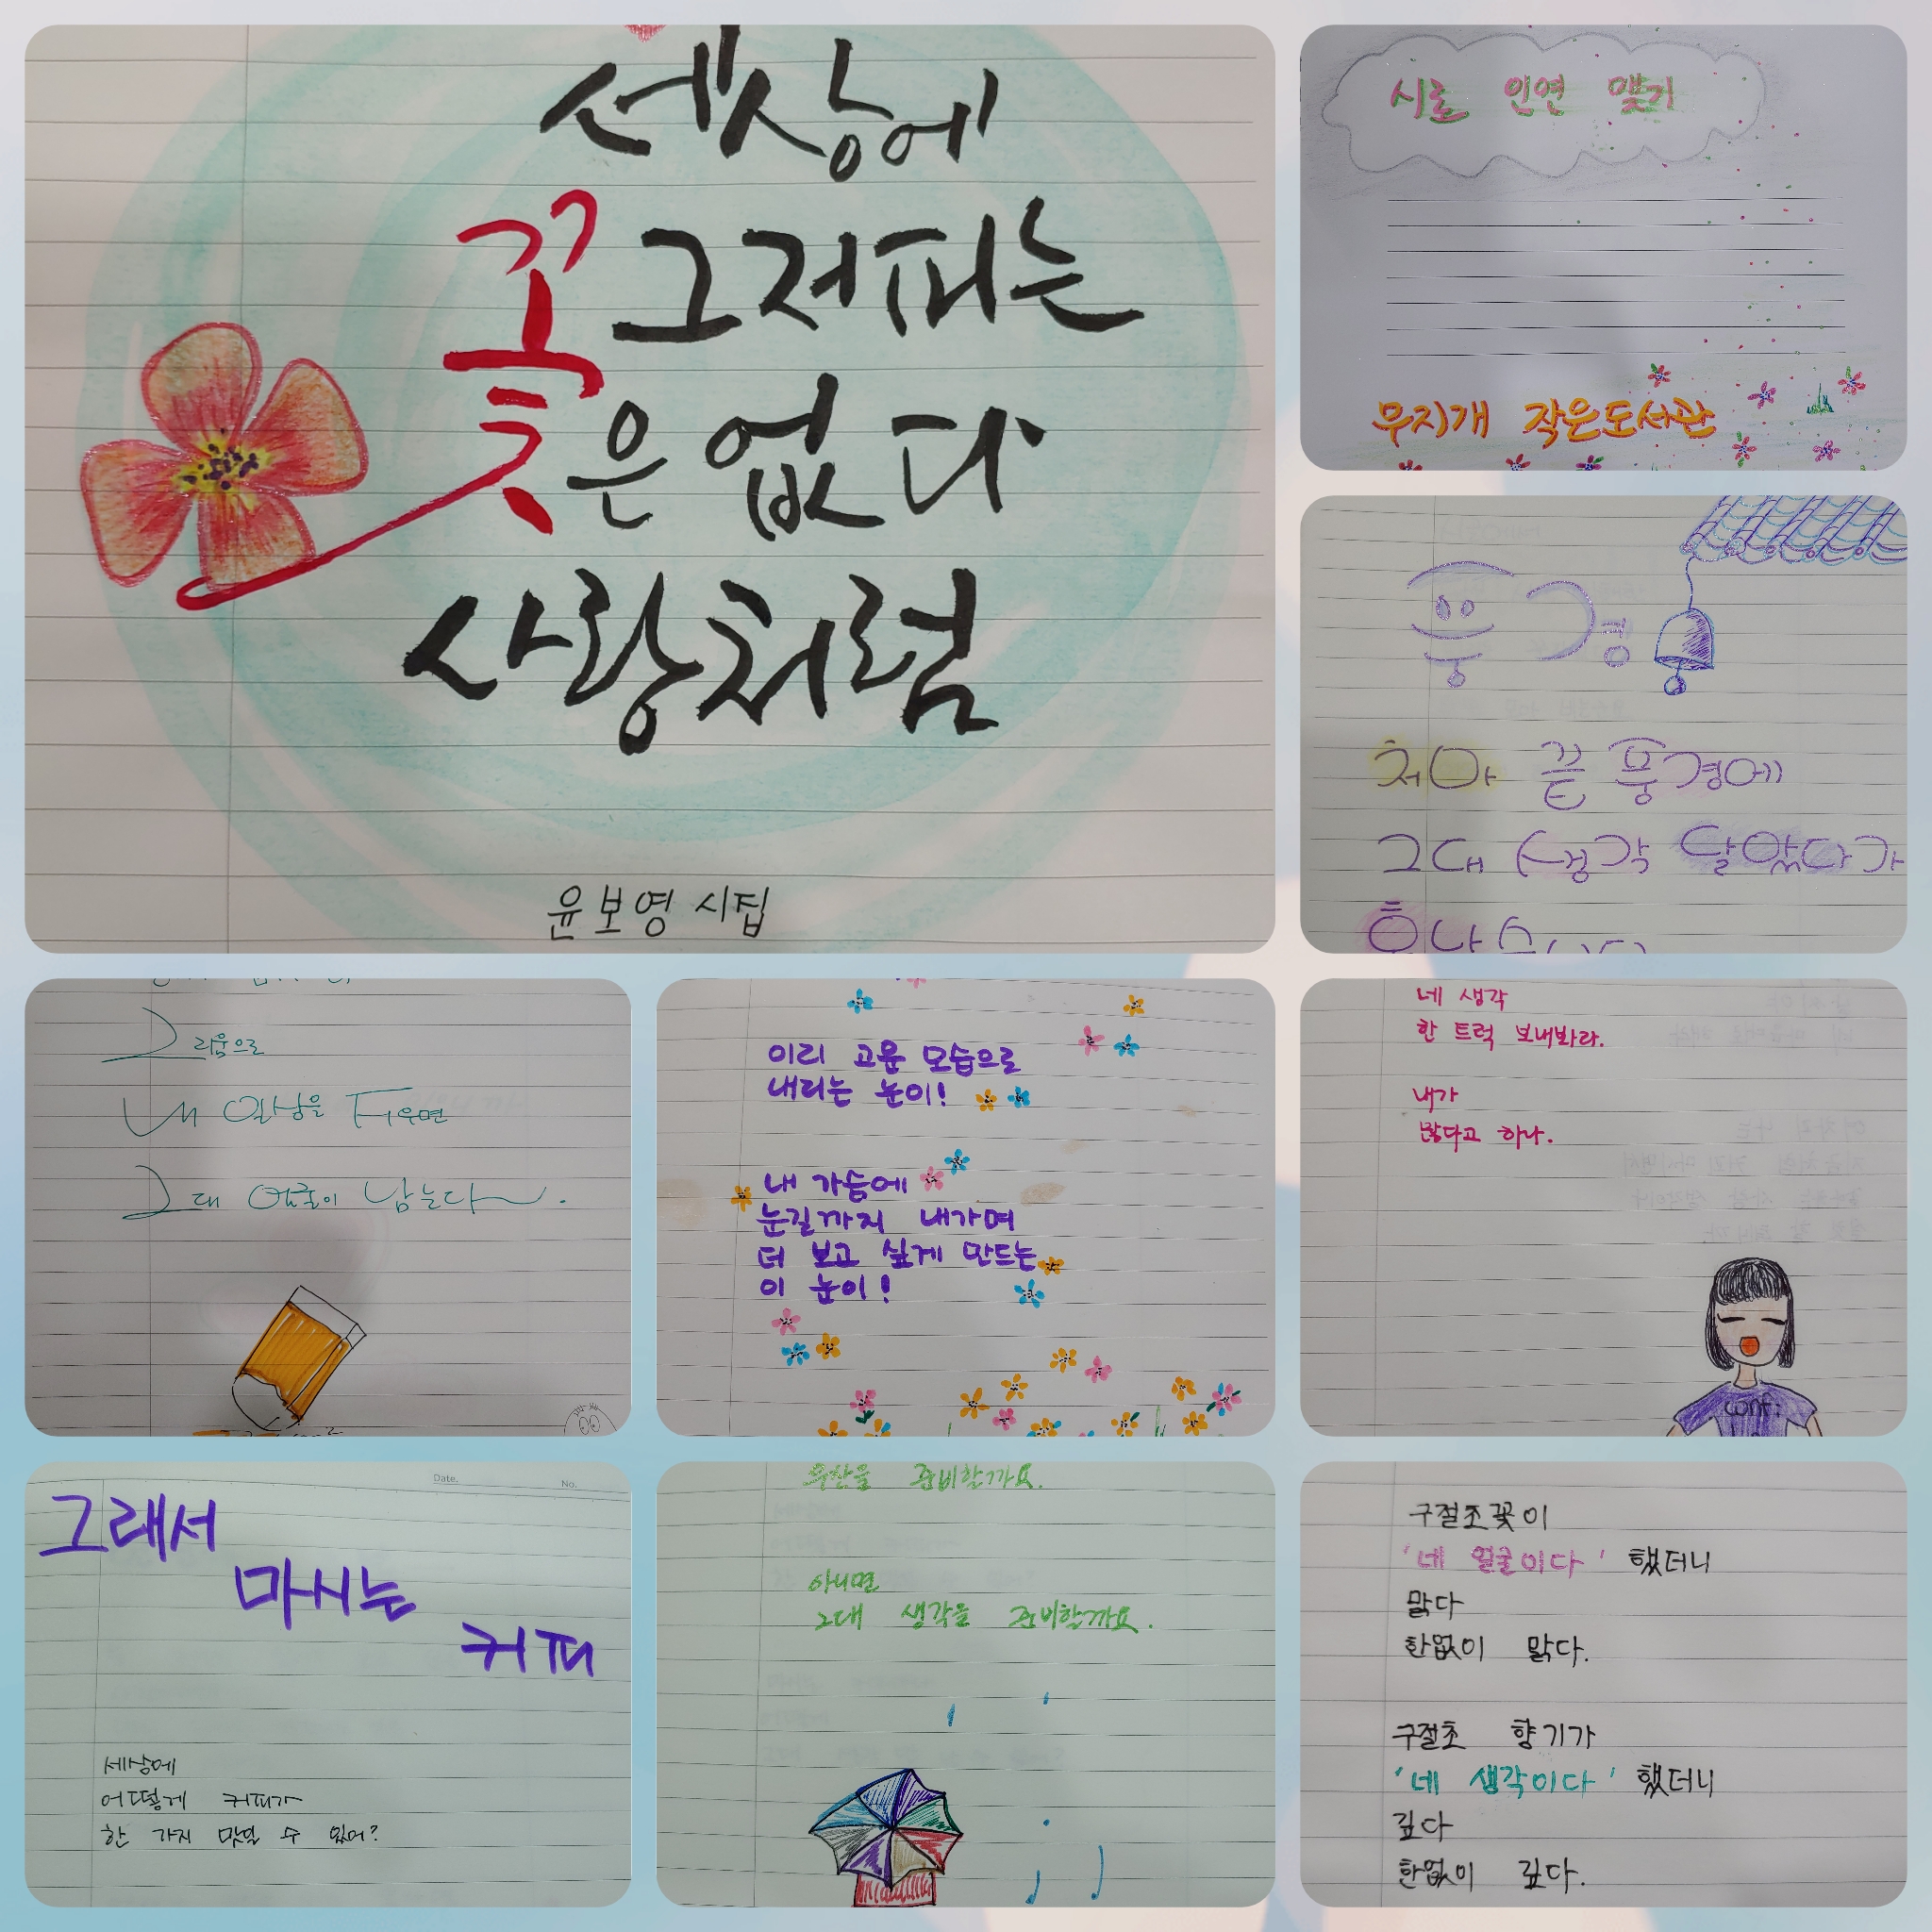 세상에
그저피는
꽃은없다
사랑처럼
윤보영 시집
시로 인연 맺기
무지개 작은도서관
풍경
처마 끝 풍경에
그대 생각 달았다가
그리움으로
내 일상을 지우면
그대 얼굴이 남는다.
이리 고운 모습으로
내리는 눈이!
내 가슴에
눈길까지 내가며
더 보고 싶게 만드는
이 눈이!
네 생각
한 트럭 보내봐라.
내가
많다고 하나.
conf:
Date.
No.
그래서
마시는
커피
세상에
어떻게 커피가
한 가지 맛일 수 있어?
우산을 준비할까요.
아니면
그대 생각을 준비할까요.
구절초꽃이
'네 얼굴이다' 했더니
맑다
한없이 맑다.
구절초 향기가
'네 생각이다' 했더니
깊다
한없이 깊다.